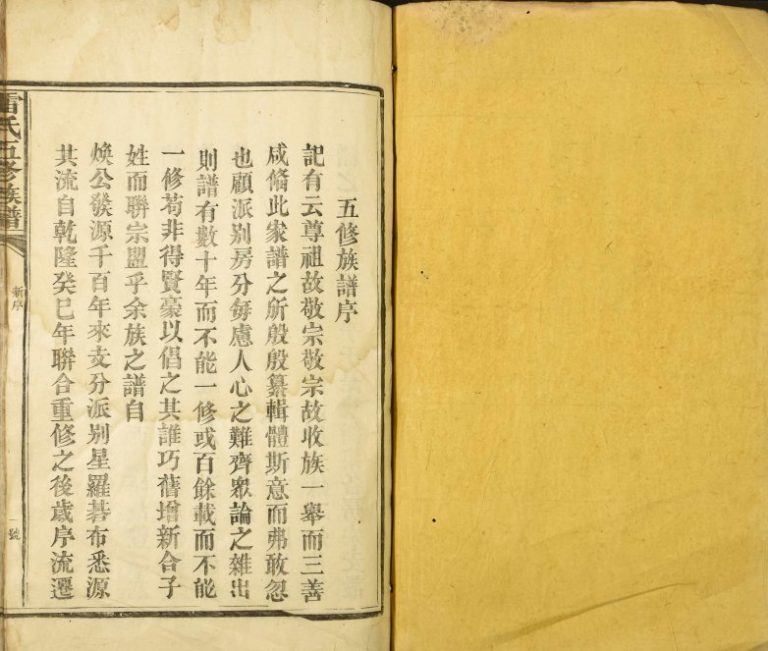 五修族譜序
記有云尊祖故敬宗敬宗故收族一舉而三善
咸偹此家譜之所殷殷纂輯體斯意而弗敢忽
也顧派别房分毎慮人心之難齊眾論之雜出
則譜有數十年而不能一修或百餘載而不能
一修苟非得賢豪以倡之其誰巧舊增新合子
姓而聯宗盟乎余族之譜自
煥公發源千百年來支分派别星羅碁布悉源
其流自乾隆癸巳年聯合重修之後歲序流遷
雷氏五修族譜
新序
一號